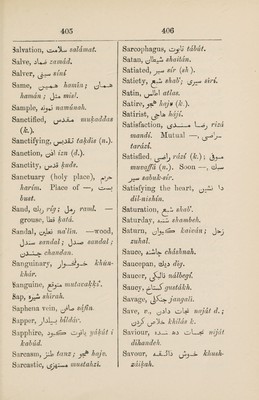 405
Salvation, سلامت salámat.
Salve, ضماد zamád.
Salver, سینی síní
Same, همین hamín; همان
hamán; مثل misl.
Sample, نمونه namúnah.
Sanctified, مقدس muḳaddas
(k.).
Sanctifying, تقدیس taḳdís (n.).
Sanction, اذن izn (d.).
Sanctity, قدس ḳuds.
Sanctuary (holy place), حرم
harím. Place of —, بست
bust.
Sand, ریگ ríg; رمل raml. —
grouse, قطا ḳatá.
Sandal, نعلین na'lin. —wood,
صندل sandal; صندل sandal;
چندن chandan.
Sanguinary, خونخوار khún-
khár.
Sanguine, متوقع mutavaḳḳi'.
Sap, شیره shírah.
Saphena vein, صافن sáfin.
Sapper, بیلدار bíldár.
Sapphire, یاقوت کبود yáḳút i
kabúd.
Sarcasm, طنز tanz; هجو hajo.
Sarcastic, مستهزی mustahzí.
406
Sarcophagus, تابوت tábút.
Satan, شیطان shaitán.
Satiated, سیر sír (sh).
Satiety, شبع shab'; سیری sírí.
Satin, اطلس atlas.
Satire, هجو hajo (k.).
Satirist, هاجی hájí.
Satisfaction, رضامندی rizá
mandí. Mutual —, تراضی
tarází.
Satisfied, راضی rází (k.); موفی
muvaffá (n.). Soon —, سبک
سیر sabuk-sír.
Satisfying the heart, دل نشین
dil-nishín.
Saturation, شبع shab'.
Saturday, شنبه shambeh.
Saturn, کیوان kaiván; زحل
zuhal.
Sauce, چاشنی cháshnah.
Saucepan, دیگ díg.
Saucer, نالبکی nálbegí.
Saucy, گستاخ gustákh.
Savage, جنگلی jangalí.
Save, v., نجات دادن naját d.;
خلاص کردن khilás k.
Saviour, نجات دهنده naját
dihandeh.
Savour, خوش ذائقه khush-
záiḳah.